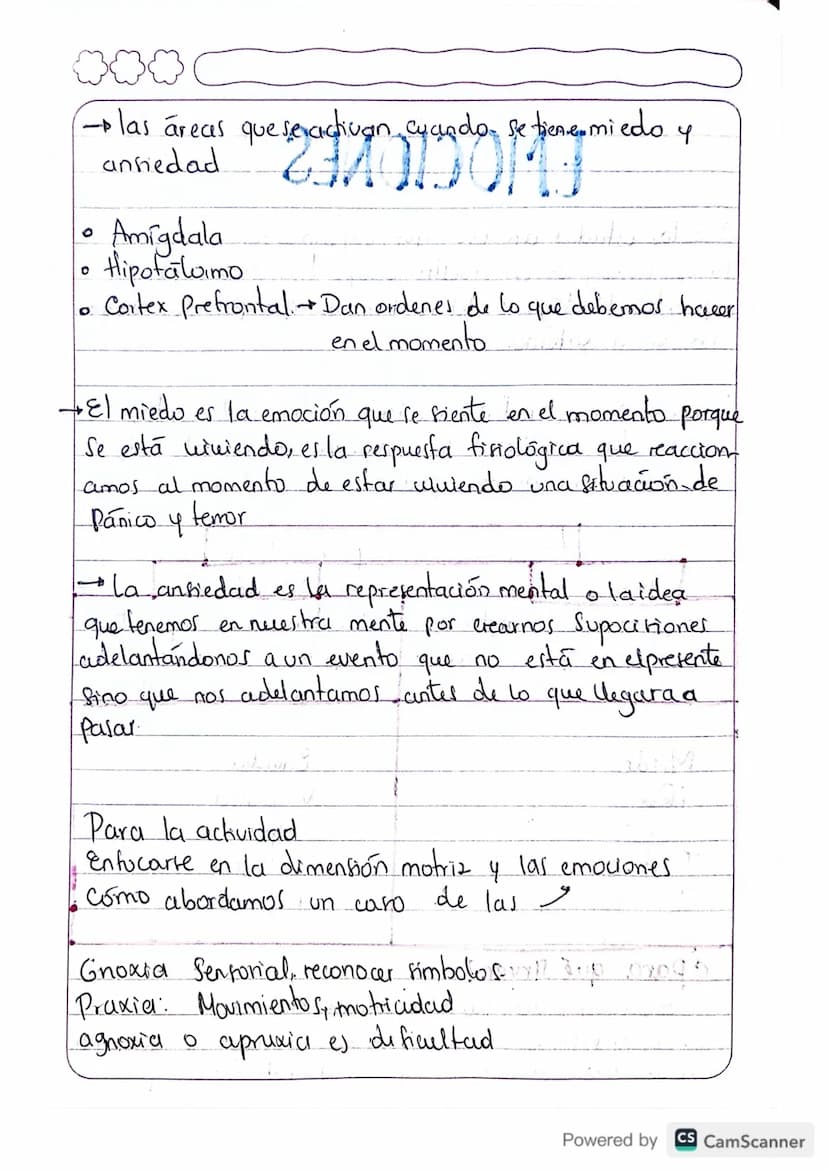 → las áreas que se activan cuando se tiene miedo y
ansiedad
EMOCIONES
• Amígdala
• Hipotálamo
• Cortex Prefrontal → Dan ordenes de lo que debemos hacer
en el momento
→ El miedo es la emoción que se siente en el momento porque
se está viviendo, es la respuesta fisiológica que reaccion
amos al momento de estar viviendo una situación de
Pánico y temor
→ La ansiedad es la representación mental o la idea
que tenemos en nuestra mente por crearnos Suposiciones
adelantándonos a un evento que no está en el presente
Sino que nos adelantamos antes de lo que llegara a
Pasar.
Para la actividad
Enfocarse en la dimensión motriz y las emociones
Cómo abordamos un caso de las ↗
Gnoxia Sensorial, reconocer símbolos
Praxia: Movimientos, motricidad
agnoxia o apraxia es dificultad
Powered by CS CamScanner